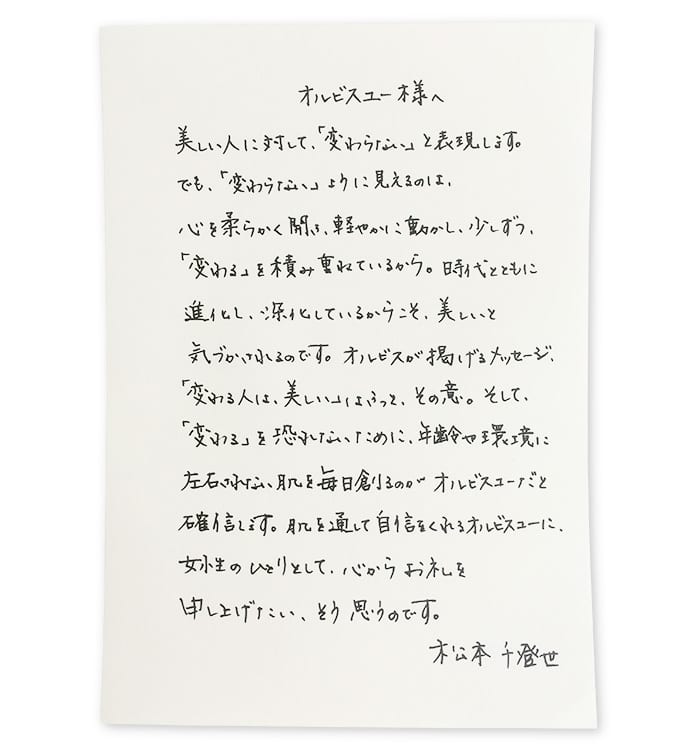 オルビスユー様へ
美しい人に対して、「変わらない」と表現します。
でも、「変わらない」ように見えるのは、
心を柔らかく開き、軽やかに動かし、少しずつ、
「変わる」を積み重ねているから。時代とともに
進化し、深化しているからこそ、美しいと
気づかされるのです。オルビスが掲げるメッセージ、
「変わる人は、美しい」はきっと、その意。そして、
「変わる」を恐れないために、年齢や環境に
左右されない肌を毎日創るのがオルビスユーだと
確信します。肌を通して自信をくれるオルビスユーに、
女性のひとりとして、心からお礼を
申し上げたい、そう思うのです。
松本千登世